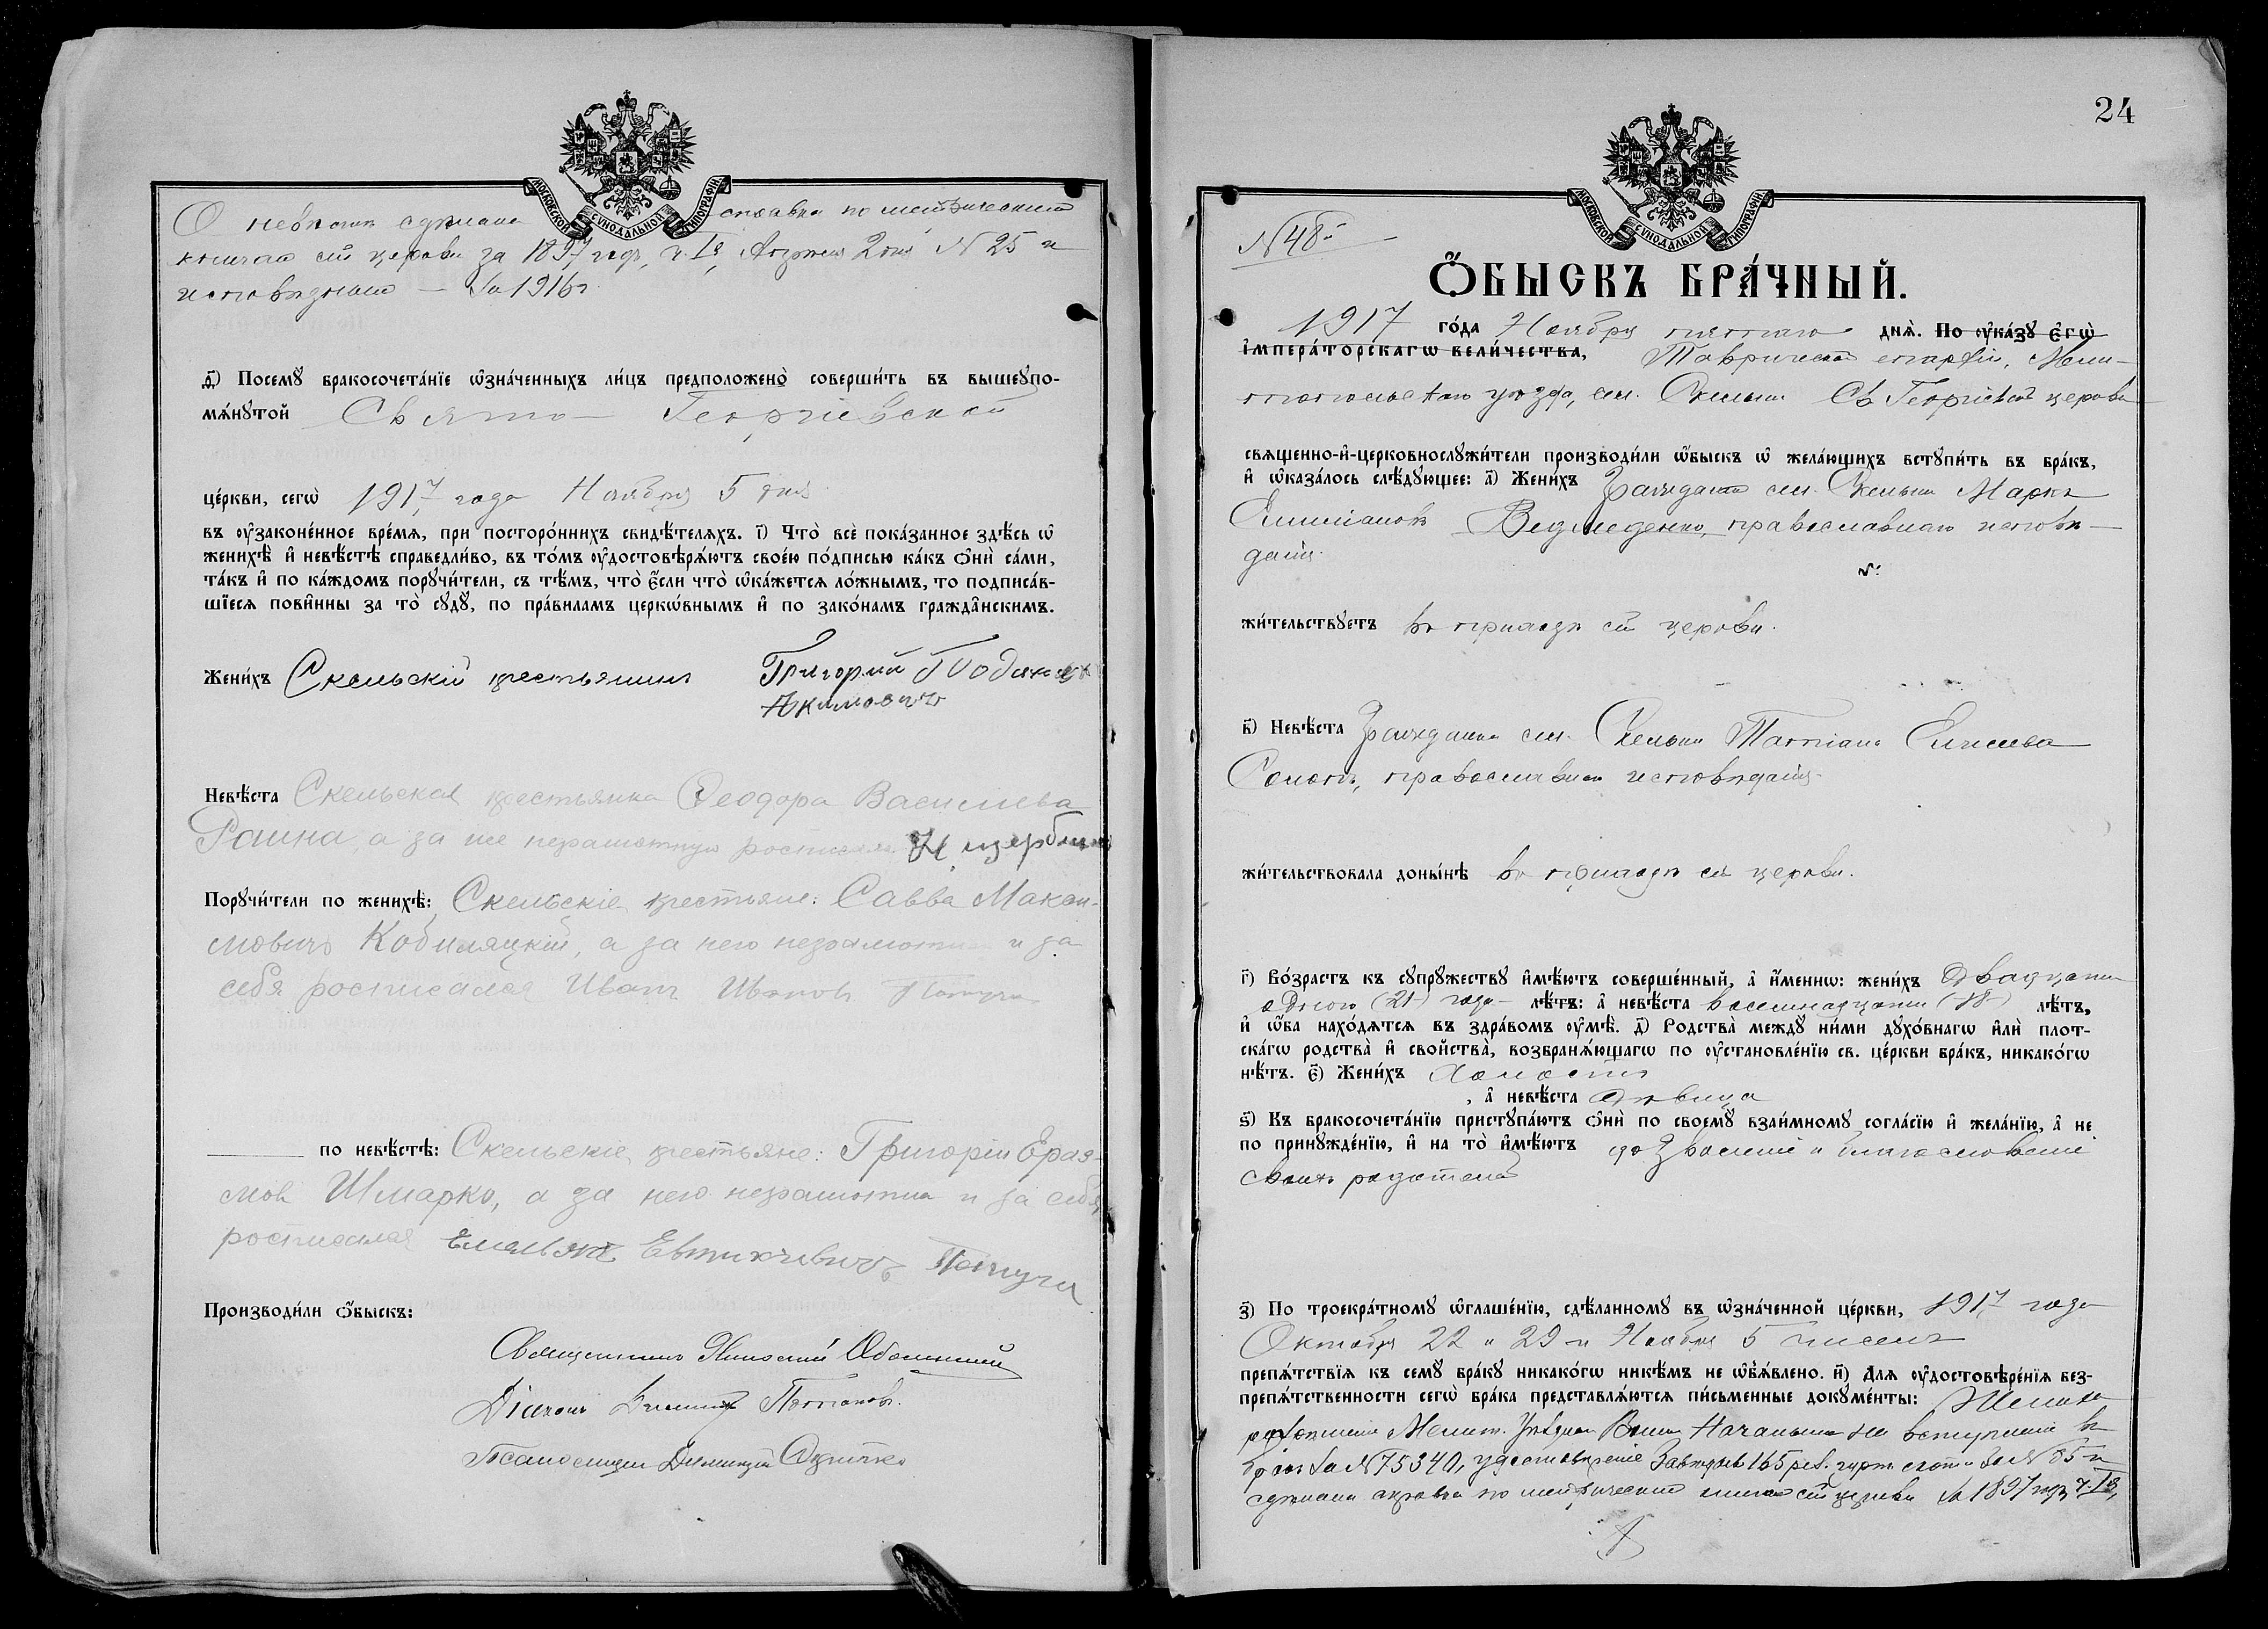 МОСКОВСКОЙ СѴНОДАЛЬНОЙ ТИПОГРАФІИ
О невѣстѣ сдѣлана справка по метрическимъ
книгамъ сей церкви за 1897 годъ, ч. Iя, 2 дня N 25 и
исповѣднымъ — за 1916 г.
д҃) Посемꙋ бракосочета́нїе ѡ҆зна́ченныхъ ли́цъ предположено̀ соверши́ть въ вышеꙋпо-
мѧ́нꙋтой Свято - Георгіевской
це́ркви, сегѡ̀ 1917 года Ноября 5 дня
въ ѹ҆законе́нное вре́мѧ, при посторо́ннихъ свидѣ́телѧхъ. і҃) Что̀ всѐ пока́занное здѣ́сь ѡ҆
женихѣ̀ и҆ невѣ́стѣ справедли́во, въ то́мъ ѹ҆достовѣрѧ́ютъ свое́ю по́дписью ка́къ ѻ҆нѝ са́ми,
та́къ и҆ по ка́ждомъ порꙋчи́тели, съ тѣ́мъ, что̀ є҆́сли что̀ ѡ҆ка́жетсѧ ло́жнымъ, то подписа́в-
шїесѧ пови́нны за то̀ сꙋдꙋ̀, по пра́виламъ церкѡ́внымъ и҆ по зако́намъ гражда́нскимъ.
Жени́хъ Скельскій крестьянинъ Григорій
Акимовичъ
Невѣ́ста Скельская крестьянка Ѳеодора Васильева
а за нее неграмотную росписался
Порꙋчи́тели по женихѣ̀: Скельскіе крестьяне: Савва Макси-
мовичъ Кобиляцкій, а за него неграмотнаго и за
себя росписался Иванъ Ивановъ
по невѣ́стѣ: Скельскіе крестьяне: Григорій Ераз-
мовъ Шмарко, а за него неграмотнаго и за себя
росписался Емельянъ Евтихіевичъ
Производи́ли ѻ҆́быскъ:
Священникъ Николай Оболенскій
Діаконъ
Псаломщикъ Димитрій
24
МОСКОВСКОЙ СѴНОДАЛЬНОЙ ТИПОГРАФІИ
N 48й
Ѻ҆́БЫСКЪ БРА́ЧНЫЙ.
1917 го́да Ноября пятаго днѧ̀. По ѹ҆ка́зꙋ є҆гѡ̀
і҆мпера́торскагѡ вели́чества, Таврической епархіи, Мели-
топольскаго уѣзда, сел. Скельки Св. Георгіевской церкви
свѧщенно-и҆-церковнослꙋжи́тели производи́ли ѡ҆́быскъ ѡ҆ жела́ющихъ встꙋпи́ть въ бра́къ,
и҆ ѡ҆каза́лось слѣ́дꙋющее: а҃) Жени́хъ Гражданинъ сел. Скельки Маркъ
Ведмеденко, православнаго исповѣ-
данія.
жи́тельствꙋетъ въ приходѣ сей церкви.
в҃) Невѣ́ста Гражданка сел. Скельки Татіана Елисеева
православнаго исповѣданія.
жи́тельствовала доны́нѣ въ приходѣ сей церкви.
г҃) Во́зрастъ къ сꙋпрꙋ́жествꙋ и҆мѣ́ютъ соверше́нный, а҆ и҆́менно: жени́хъ двадцати
одного (21) года лѣ́тъ: а҆ невѣ́ста восемнадцати (18) лѣ́тъ,
и҆ ѻ҆́ба нахо́дѧтсѧ въ здра́вомъ ѹ҆мѣ̀. д҃) Родства̀ междꙋ̀ ни́ми дꙋхо́внагѡ и҆лѝ плот-
ска́гѡ родства̀ и҆ свойства̀, возбранѧ́ющагѡ по ѹ҆становле́нїю св. це́ркви бра́къ, никако́гѡ
нѣ́тъ. є҃) Жени́хъ холостъ
, а҆ невѣ́ста дѣвица
ѕ҃) Къ бракосочета́нїю пристꙋпа́ютъ ѻ҆нѝ по своемꙋ̀ взаи́мномꙋ согла́сїю и҆ жела́нїю, а҆ не
по принꙋжде́нїю, и҆ на то̀ и҆мѣ́ютъ дозволеніе и благословеніе
своихъ родителей
з҃) По троекра́тномꙋ ѡ҆глаше́нїю, сдѣ́ланномꙋ въ ѡ҆зна́ченной це́ркви, 1917 года
Октября 22 и 29 и Ноября 5 чиселъ
препѧ́тствїѧ къ семꙋ̀ бра́кꙋ никако́гѡ никѣ́мъ не ѡ҆б̾ѧ́влено. и҃) Для ѹ҆достовѣре́нїѧ без-
препѧ́тственности сегѡ̀ бра́ка представлѧ́ютсѧ пи́сьменные докꙋме́нты: Жениха
Мелит. Уѣздн. Воин. Начальника на вступленіе въ
бракъ за N 75340, удостовѣреніе за N 85 и
сдѣлана справка по метрическимъ книгамъ сей церкви за 1897 годъ, ч. Iя,